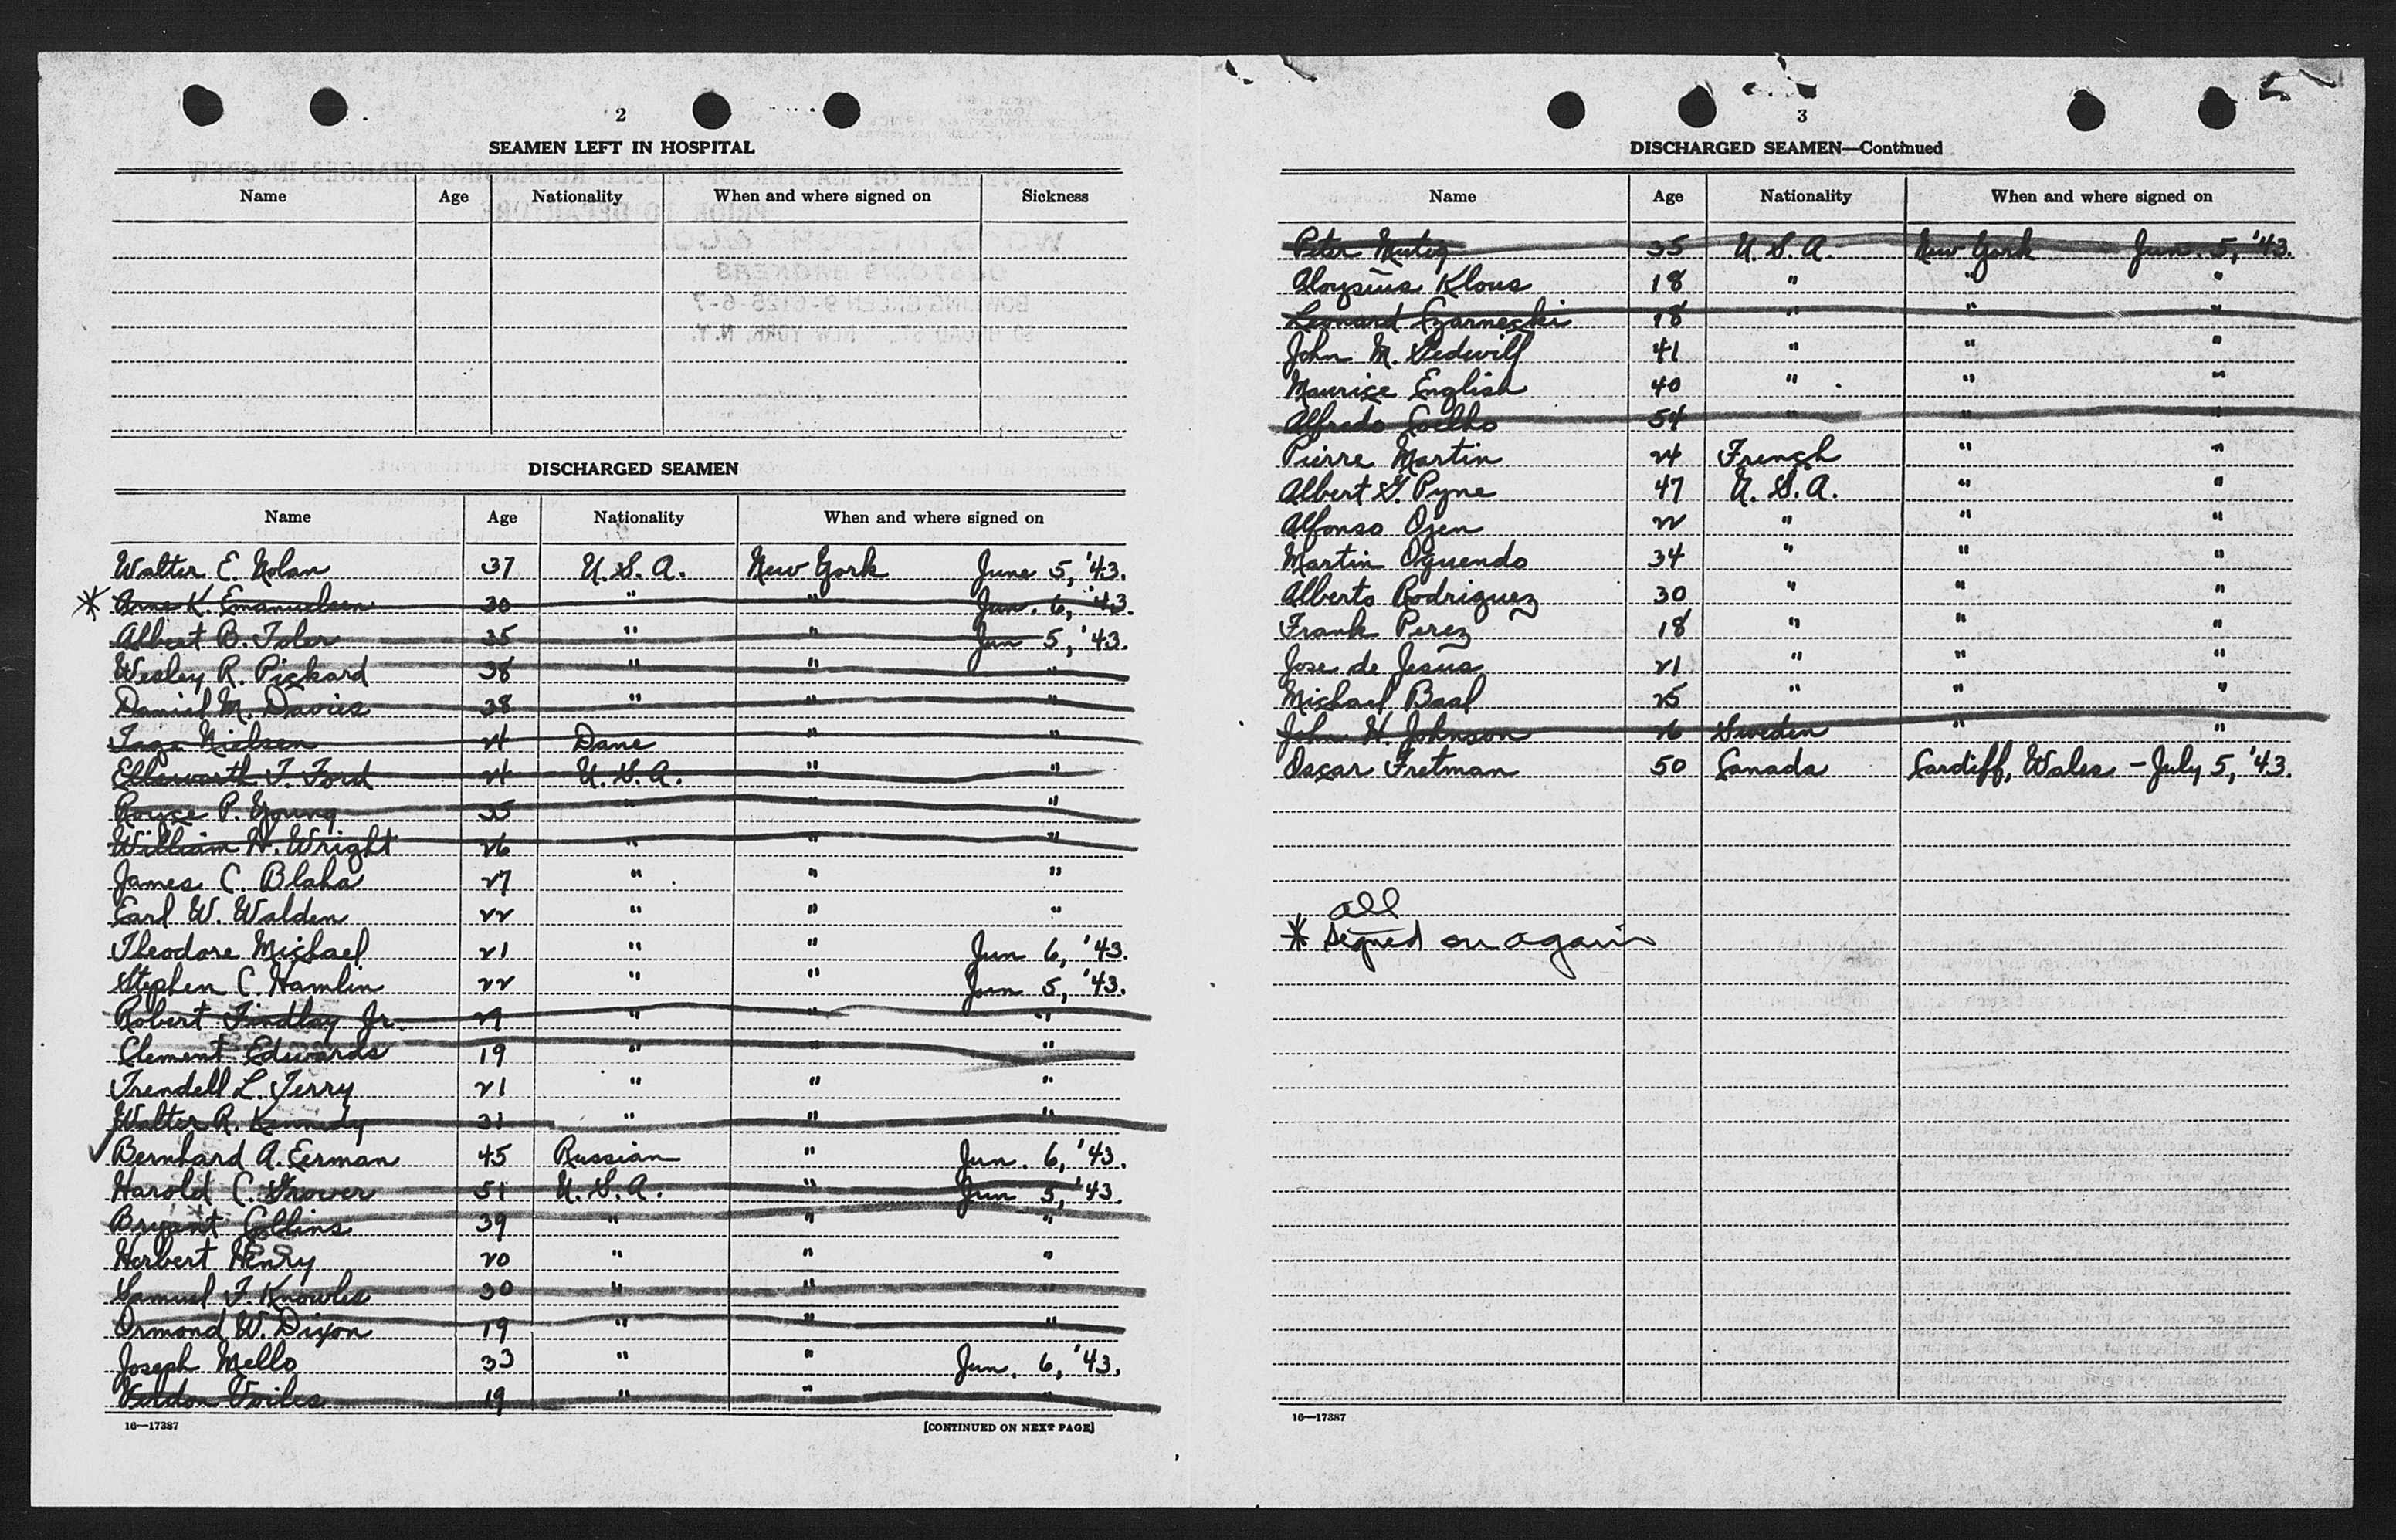 2
SEAMEN LEFT IN HOSPITAL
Name Age Nationality When and where signed on Sickness
DISCHARGED SEAMEN
Name Age Nationality When and where signed on
Walter E. Nolan 37 U.S.A. New York June 5, '43.
* Arne K. Emanuelsen 30 " " Jun. 6, '43.
Albert B. Toler 35 " " Jun 5, '43.
Wesley R. Pickard 38 " " "
Daniel M. Davies 38 " " "
Tage Nielsen 24 Dane " "
Ellsworth T. Ford 24 U.S.A. " "
Royce P. Young 35 " " "
William H. Wright 26 " " "
James C. Blaha 27 " " "
Earl W. Walden 22 " " "
Theodore Michael 21 " " Jun 6, '43.
Stephen C. Hamlin 22 " " Jun 5, '43.
Robert Findlay Jr. 29 " " "
Clement Edwards 19 " " "
Trendell L. Terry 21 " " "
Walter R. Kennedy 31 " " "
✓ Bernhard A. Eerman 45 Russian " Jun. 6, '43.
Harold C. Grower 51 U.S.A. " Jun 5, '43.
Bryant Collins 39 " " "
Herbert Henry 20 " " "
Samuel F. Knowles 30 " " "
Ormond W. Dixon 19 " " "
Joseph Mello 33 " " Jun. 6, '43.
Veldon Voiles 19 " " "
16—17387 [CONTINUED ON NEXT PAGE]
3
DISCHARGED SEAMEN—Continued
Name Age Nationality When and where signed on
Peter 35 U.S.A. New York Jun. 5, '43.
Aloysius Klous 18 " " "
Leonard Czarnecki 18 " " "
John M. 41 " " "
Maurice English 40 " " "
Alfredo Coelho 54 " " "
Pierre Martin 24 French " "
Albert G. Pyne 47 U.S.A. " "
Alfonso Ojen 22 " " "
Martin Oquendo 34 " " "
Alberto Rodriguez 30 " " "
Frank Perez 18 " " "
Jose de Jesus 21 " " "
Michael Basl 25 " " "
John H. Johnson 26 Sweden " "
Oscar Fretman 50 Canada Cardiff, Wales - July 5, '43.
all
* signed on again
16—17387